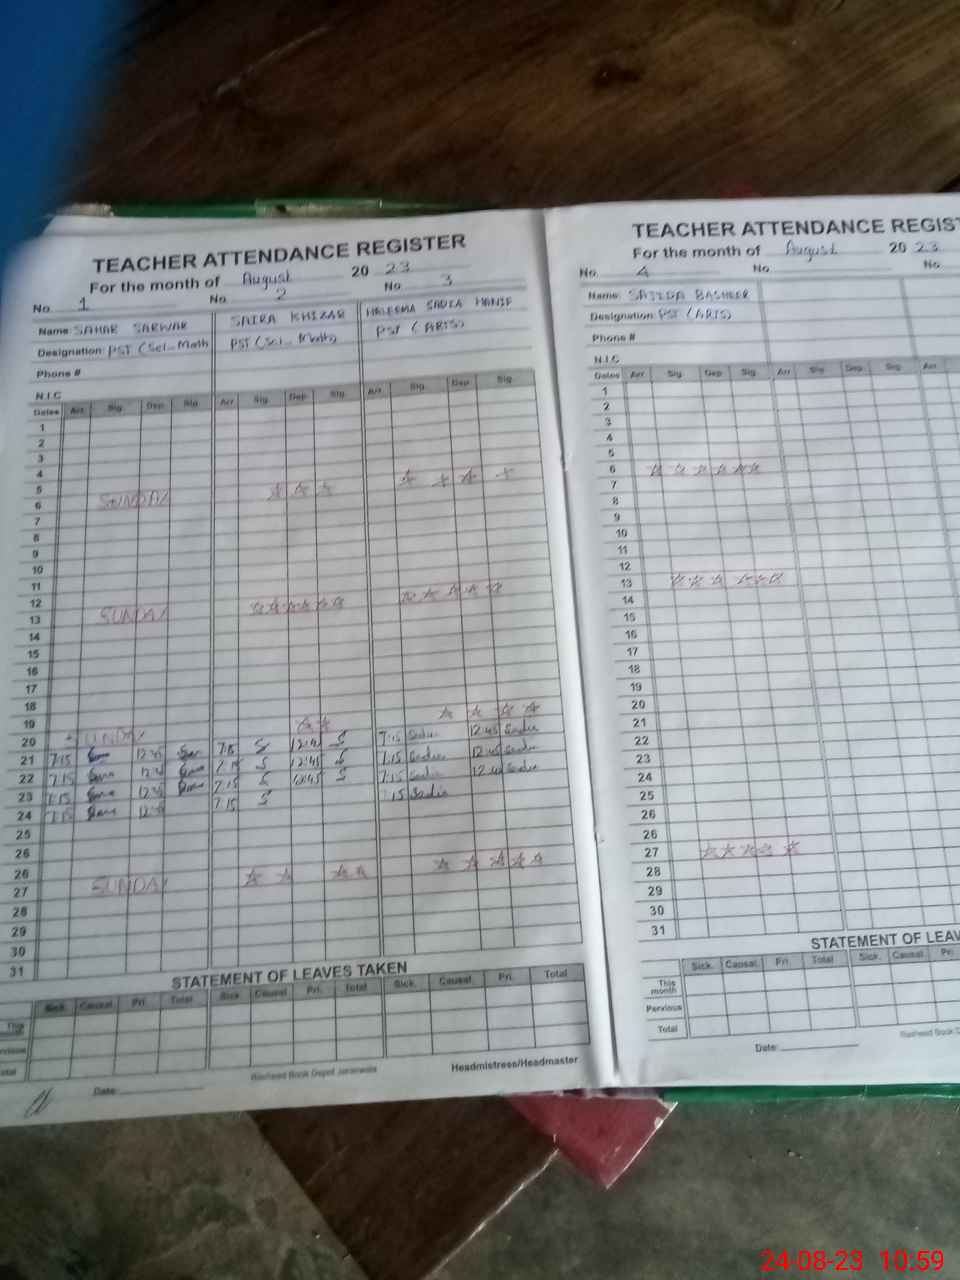 TEACHER ATTENDANCE REGISTER
For the month of August 2023
No. 1 No 2 No 3
Name: SAHAR SARWAR SAIRA KHIZAR HALEEMA SADIA HANIF
Designation: PST (Sci-Math) PST (Sci-Math) PST (ARTS)
Phone #
N.I.C
Dates Arr. Sig. Dep. Sig. Arr. Sig. Dep. Sig. Arr. Sig. Dep. Sig.
1
2
3
4
5
6 SUNDAY
7
8
9
10
11
12
13 SUNDAY
14
15
16
17
18
19
20 SUNDAY
21 7:15 12:45 7:15 S 12:45 S 7:15 Sadia 12:45 Sadia
22 7:15 12:45 7:15 S 12:45 S 7:15 Sadia 12:45 Sadia
23 7:15 12:45 7:15 S 12:45 S 7:15 Sadia 12:45 Sadia
24 7:15 12:45 7:15 S 7:15 Sadia
25
26
26
27 SUNDAY
28
29
30
31
STATEMENT OF LEAVES TAKEN
Sick. Causal Pri. Total Sick Causal Pri. Total Sick. Causal Pri. Total
This
Total
Date:
Rasheed Book Depot Jaranwala
Headmistress/Headmaster
TEACHER ATTENDANCE REGIST
For the month of August 2023
No. 4 No. No.
Name: SAJIDA BASHEER
Designation: PST (ARTS)
Phone #
N.I.C
Dates Arr. Sig. Dep. Sig. Arr. Sig. Dep. Sig. Arr.
1
2
3
4
5
6
7
8
9
10
11
12
13
14
15
16
17
18
19
20
21
22
23
24
25
26
26
27
28
29
30
31
STATEMENT OF LEAV
Sick. Causal Pri. Total Sick. Causal Pri.
This month
Pervious
Total
Date:
Rasheed Book D
24-08-23 10:59